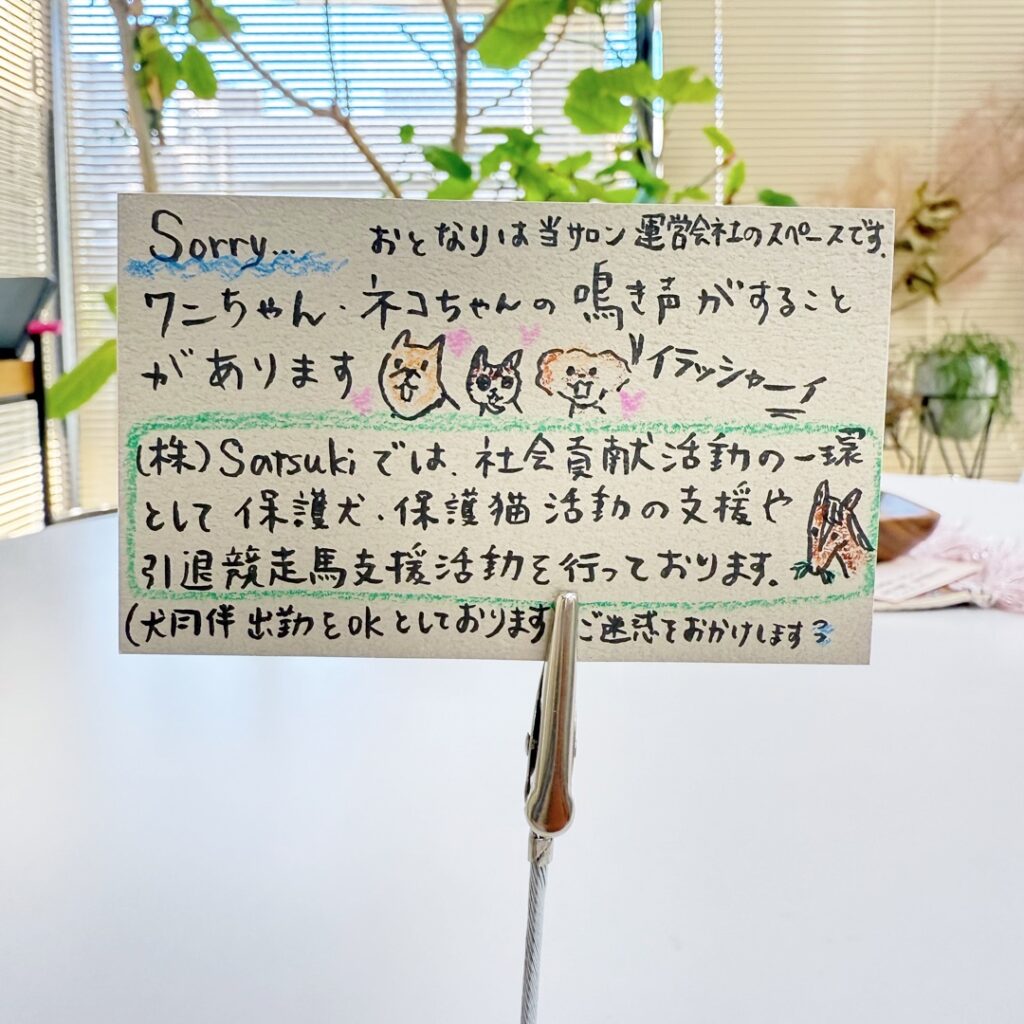 Sorry... おとなりは当サロン運営会社のスペースです.
ワンちゃん・ネコちゃんの鳴き声がすること
があります イラッシャーイ
(株)Satsukiでは、社会貢献活動の一環
として保護犬・保護猫活動の支援や
引退競走馬支援活動を行っております.
(犬同伴出勤をOKとしております ご迷惑をおかけします